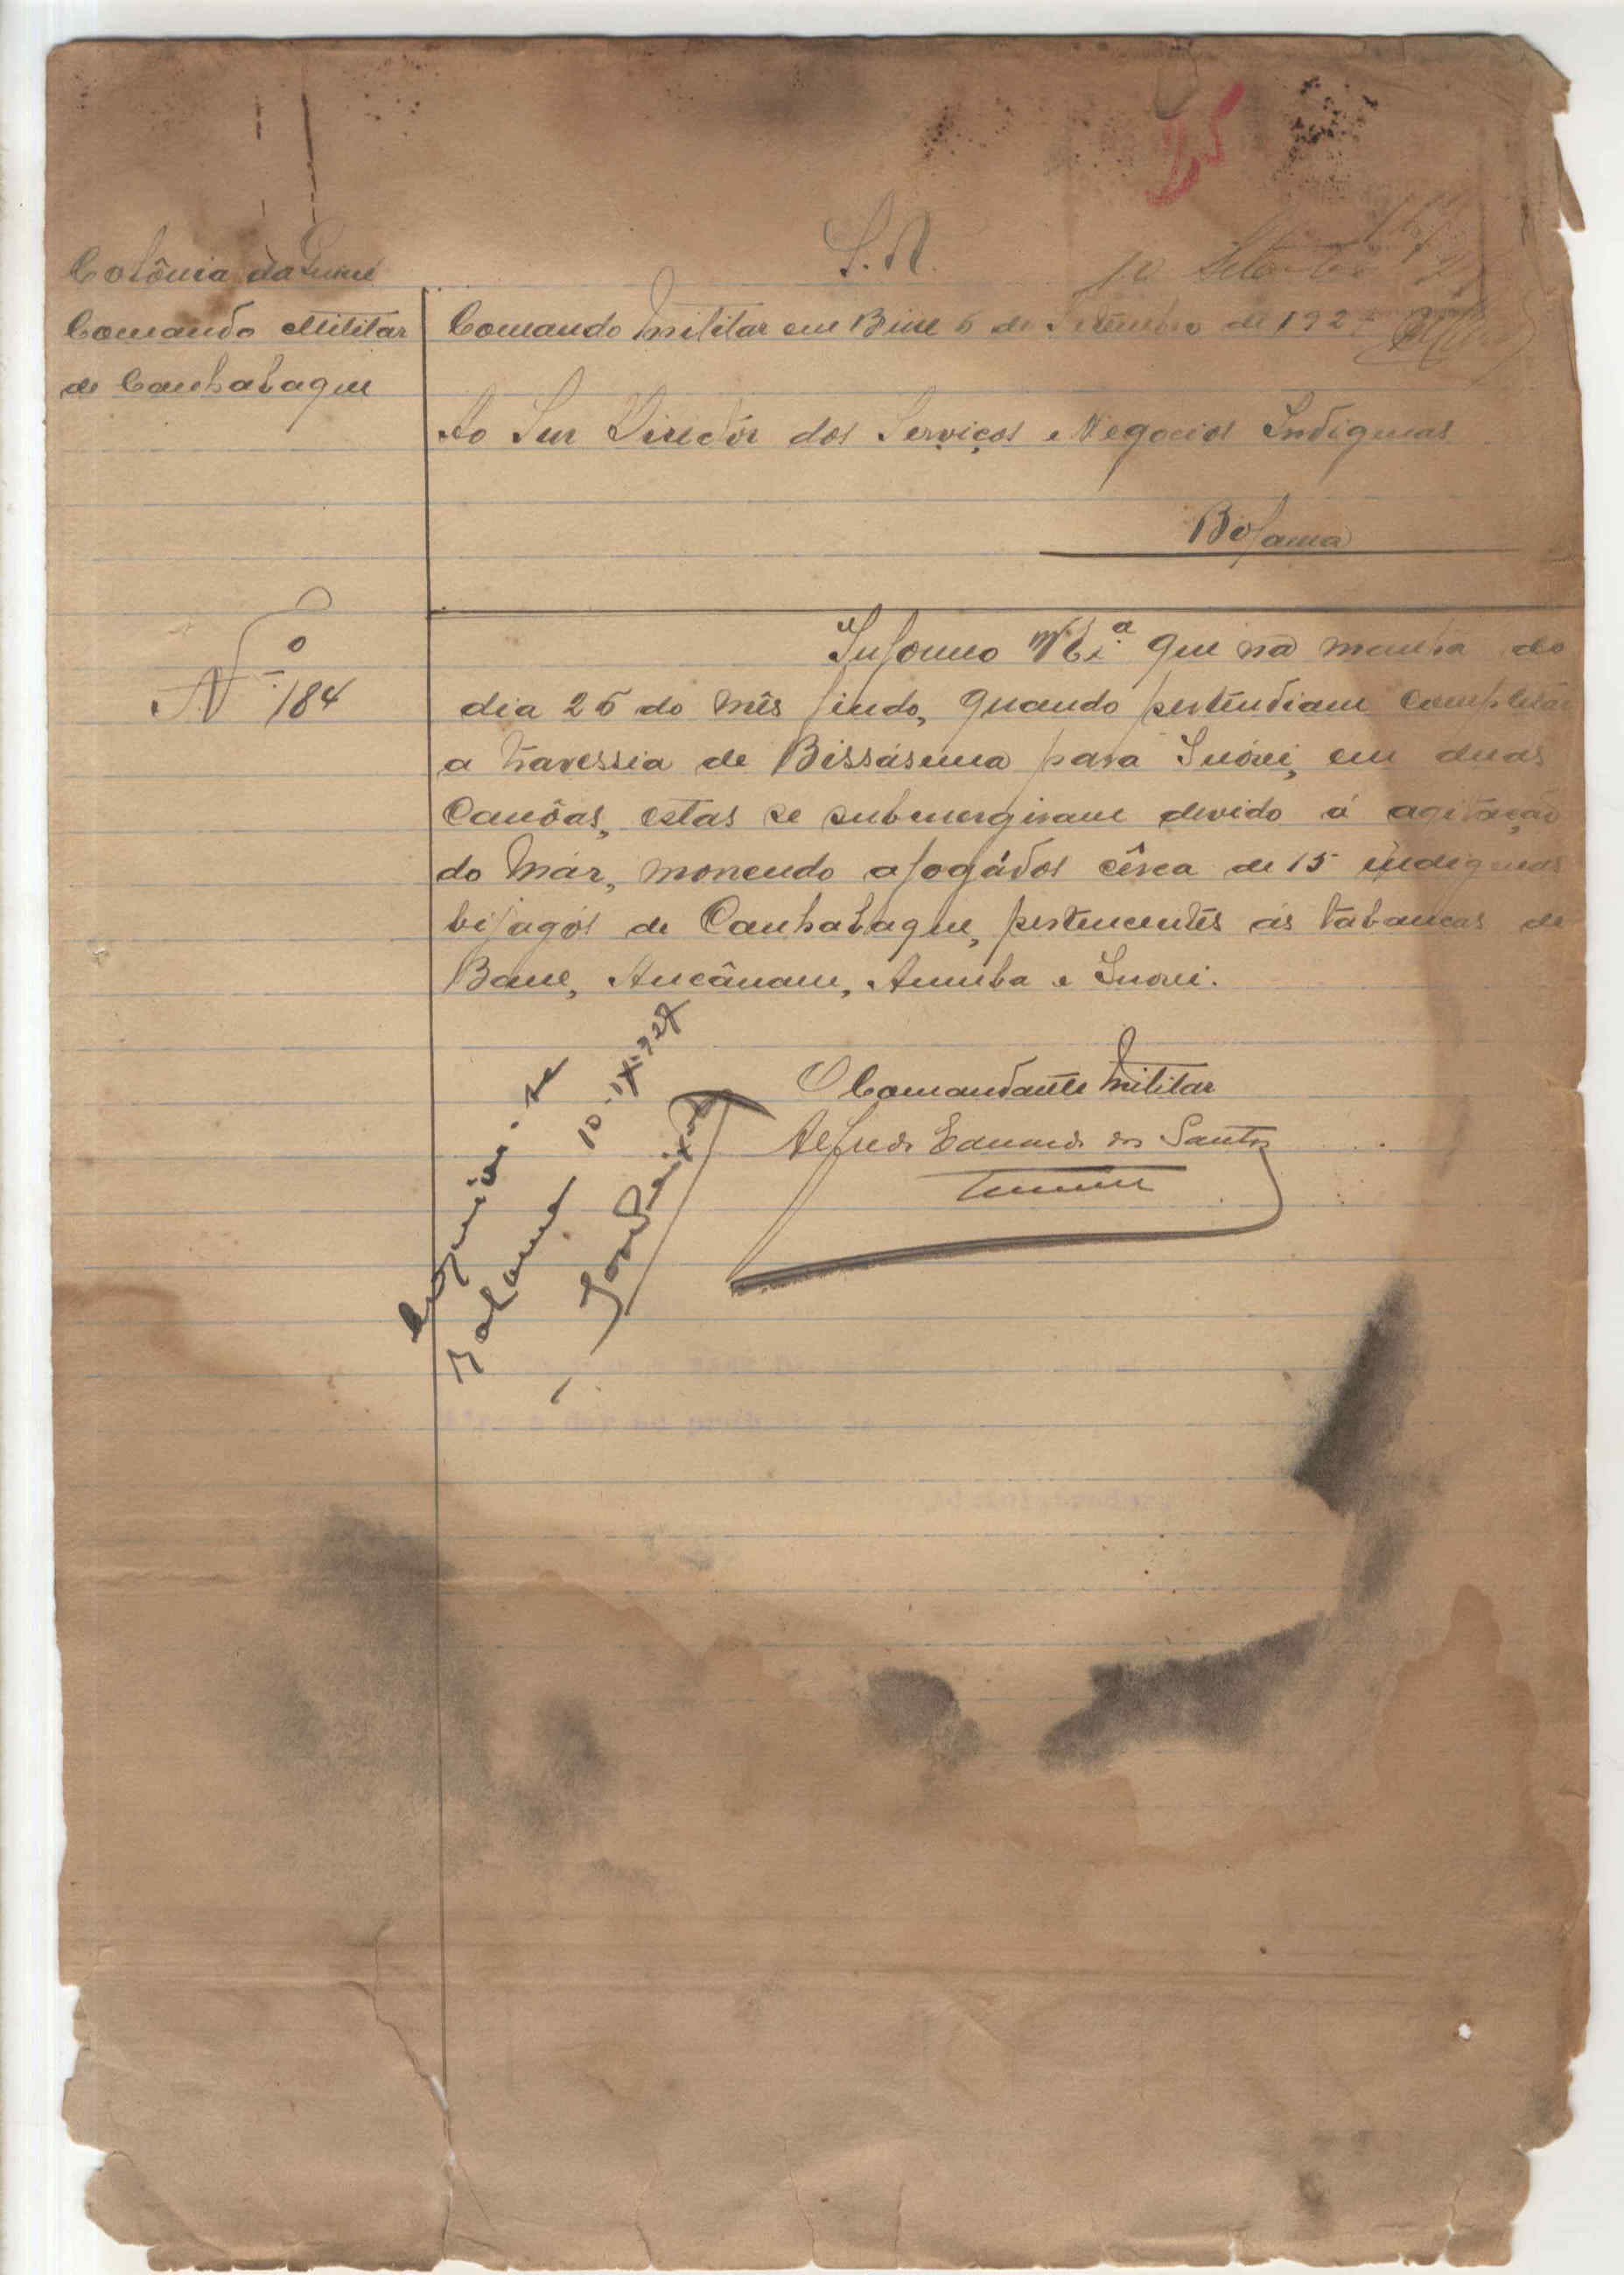 25
S. N.
10 Setembro
Colônia da Guiné
Comando Militar
de Canhabaque
Comando Militar em Bine 5 de Setembro de 192
Ao Snr Diredór dos Serviços e Negocios Indigenas
Bolama
N.º 184
Informo V. Ex.ª que na manha do
dia 25 do mês findo, quando pertendiam completar
a travessia de Bissásema para Inórei, em duas
Canôas, estas se submergiram devido á agitação
do Már, morrendo afogádos cêrca de 15 indigenas
bijagós de Canhabaque, pertencentes ás tabancas de
Bane, Ancânam, Anumba e Inorei.
O Comandante Militar
Alfredo Eduardo dos Santos
Tenente
Arquive-se
Bolama 10-IX-927